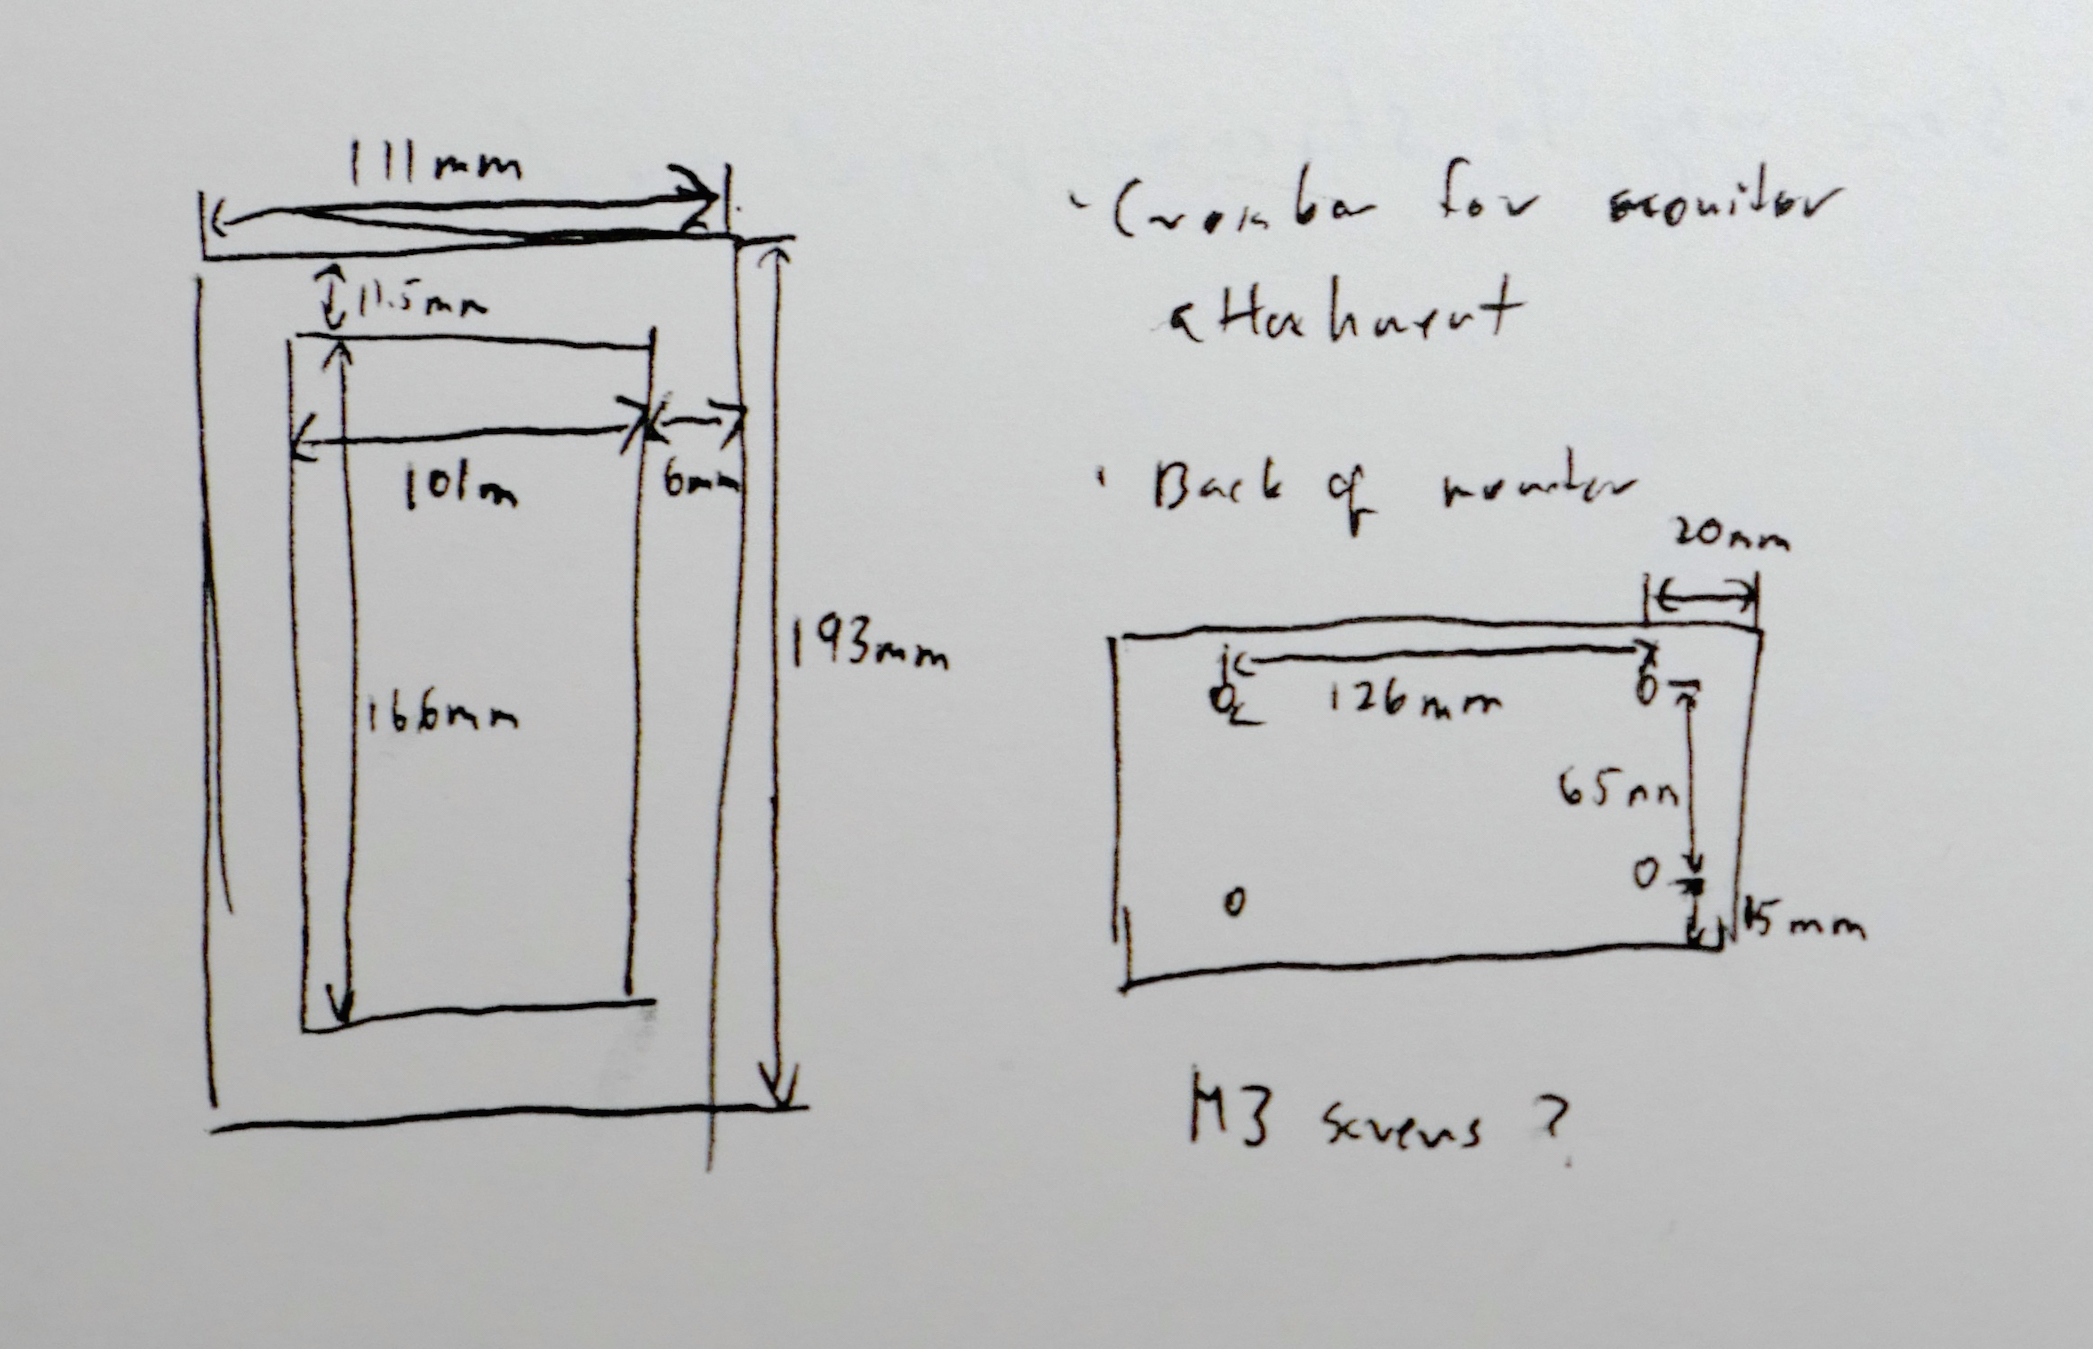 111mm
11.5mm
101m
6mm
193mm
166mm
· Crossbar for monitor
attachment
· Back of monitor
20mm
126mm
65mm
15mm
M3 screws ?